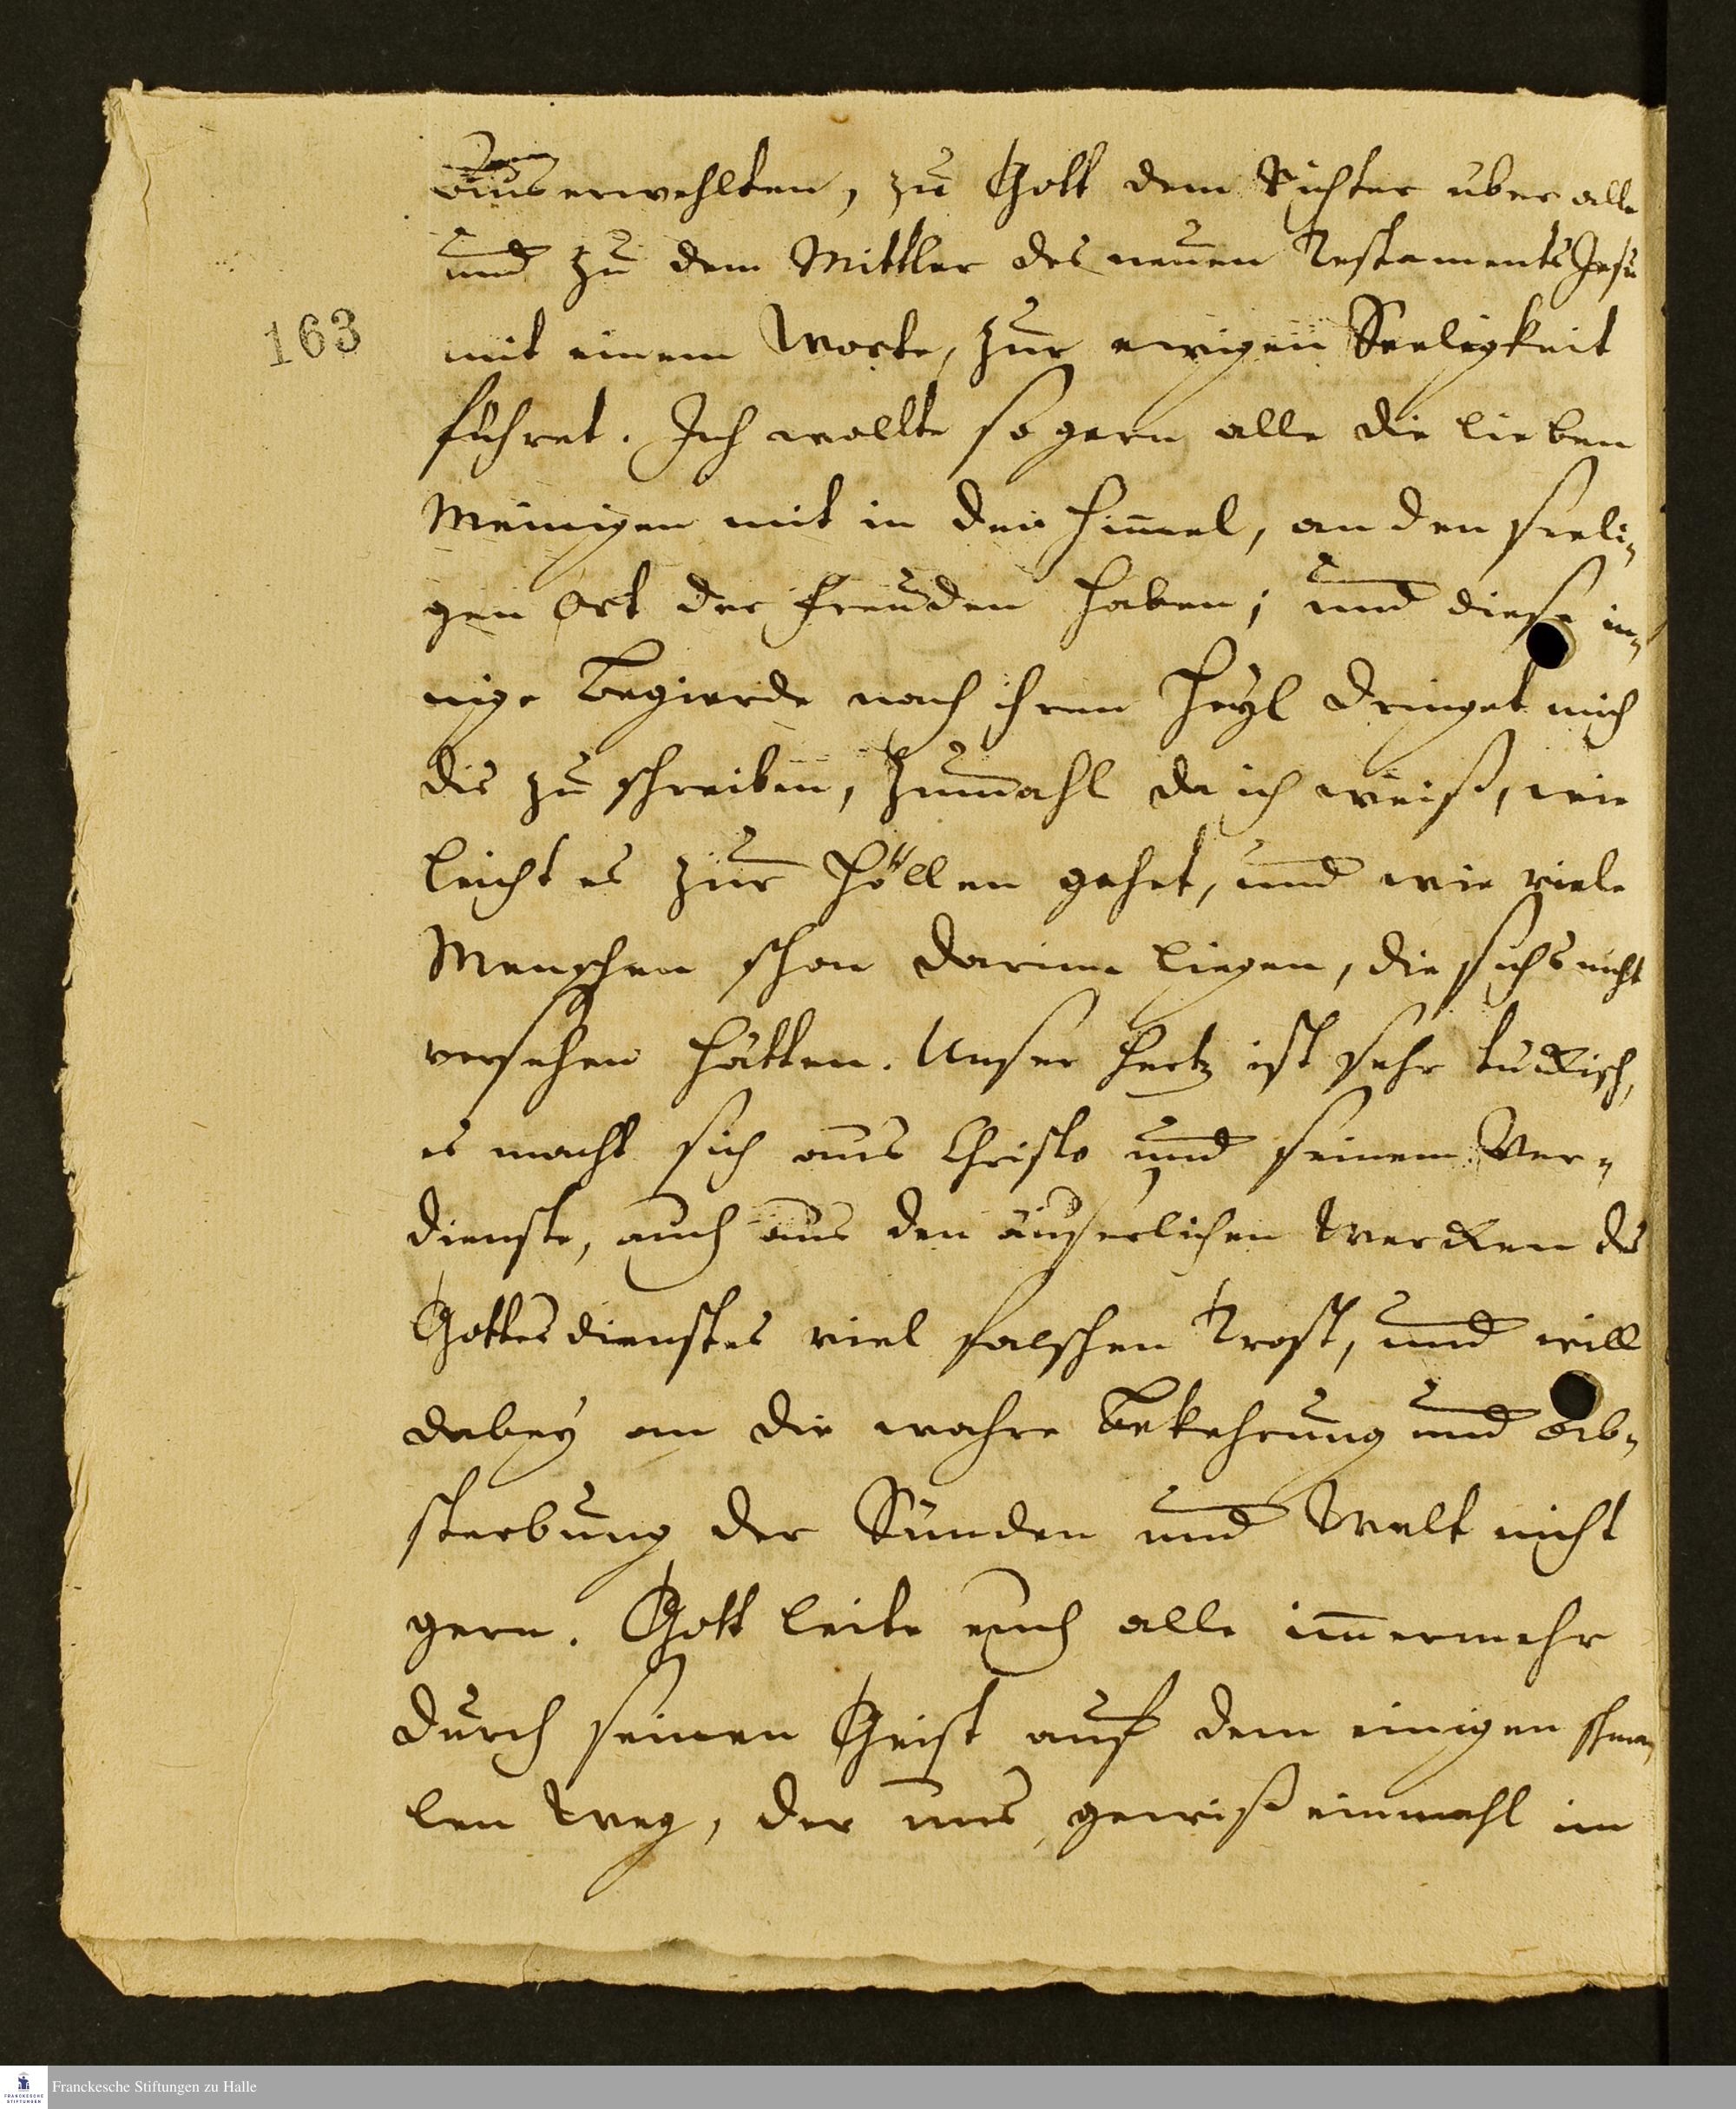 Auserwehlten, zu Gott dem Richter uber alle
und zu dem Mittler des neuen Testaments Jesu
163
mit einem Worte, zur ewigen Seeligkeit
führet. Ich wollte so gern alle die lieben
Meinigen mit in den Him̅el, an den seeli-
gen Ort der Freuden haben; und diese in-
nige Begierde nach ihren Heyl dringet mich
dis zu schreiben, zumahl da ich weiß, wie
leicht es zur Höllen gehet, und wie viele
Menschen schon darinne liegen, die sichs nicht
versehen hätten. Unser Hertz ist sehr tuckisch,
es macht sich aus Christo und seinem Ver-
dienste, auch aus den äuserlichen Wercken des
Gottesdienstes viel falschen Trost, und will
dabey an die wahre Bekehrung und Ab-
sterbung der Sünden und Welt nicht
gern. Gott leite euch alle im̅ermehr
durch seinen Geist auf dem einigen schma-
len Weg, der uns gewiß einmahl im
Franckesche Stiftungen zu Halle
FRANCKESCHE
STIFTUNGEN